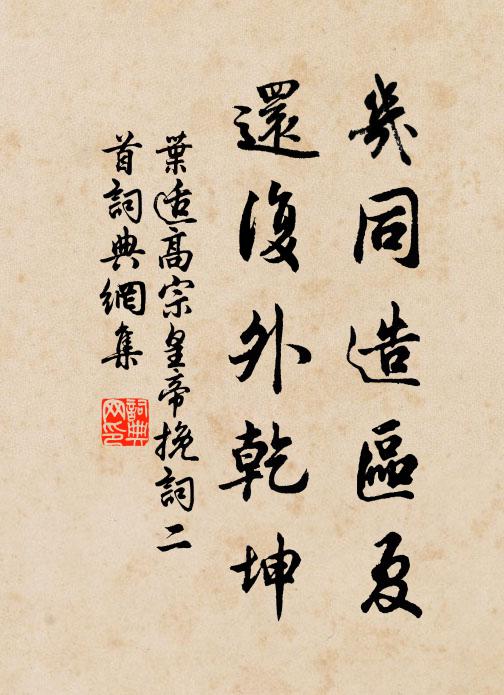 幾同造區夏
還復外乾坤
葉適高宗皇帝挽詞二
首詞典網集
詞典
网印